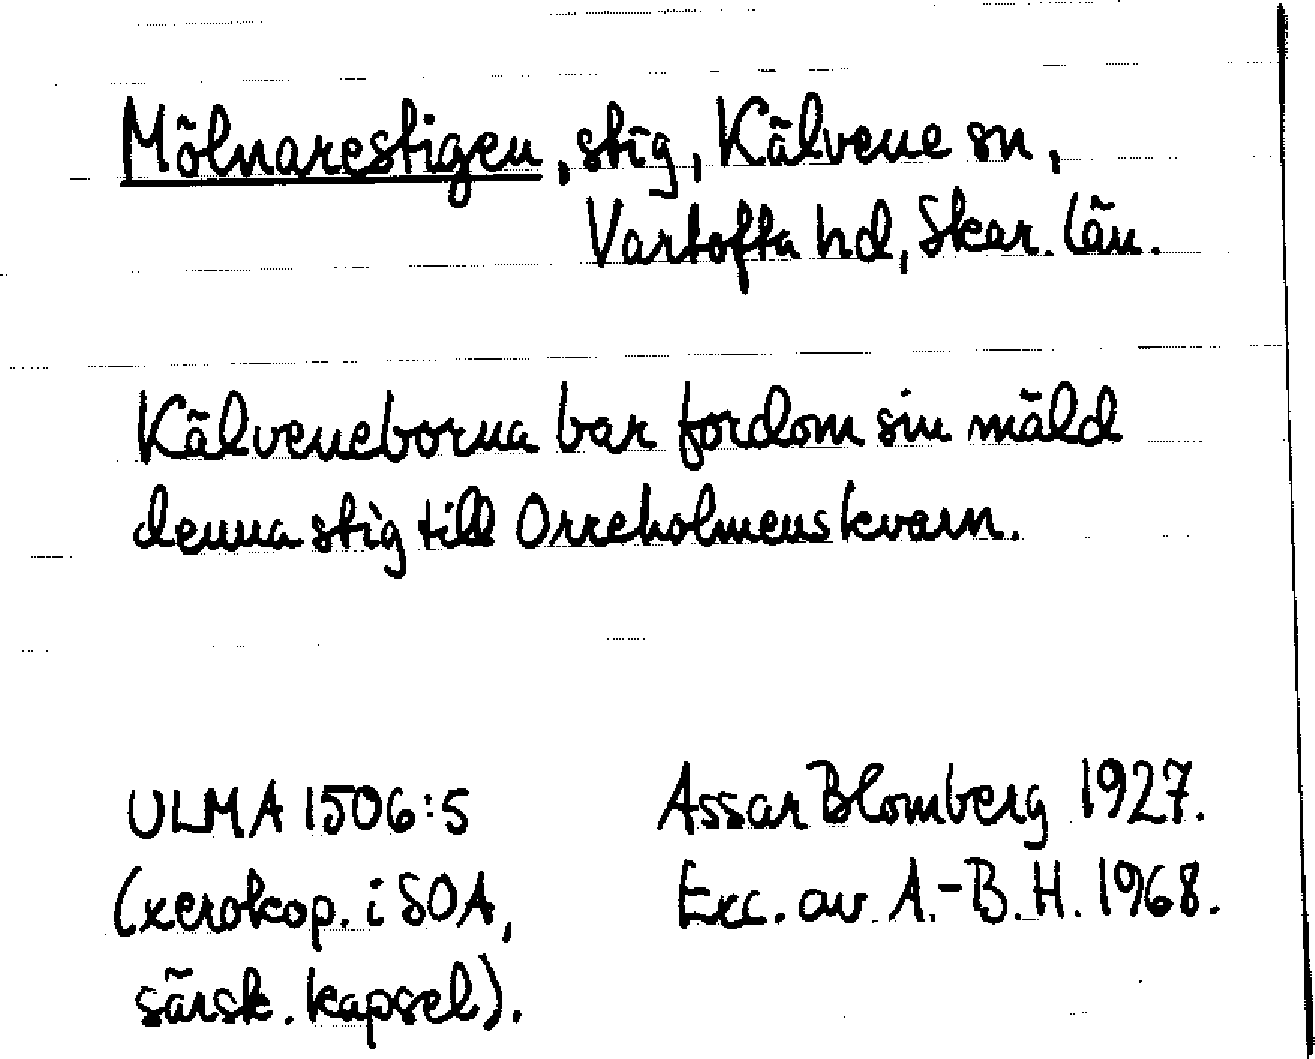 Mölnarestigen, stig, Kälvene sn,
Vartofta hd, Skar. län.
Kälveneborna bar fordom sin mäld
denna stig till Orreholmens kvarn.
ULMA 1506:5
(xerokop. i SOA,
särsk. kapsel).
Assar Blomberg 1927.
Exc. av A.-B.H. 1968.